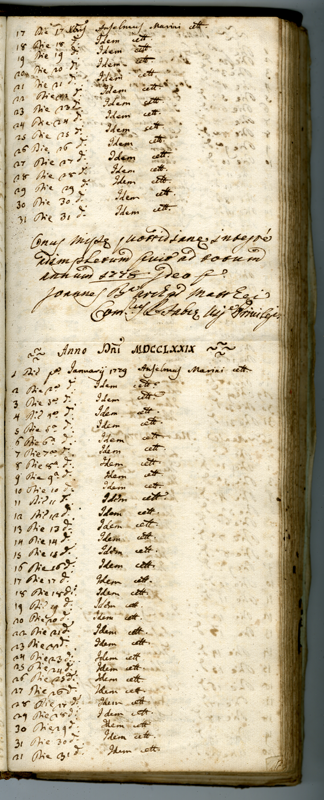 17 Die 17 Xbris Anselmus Marini cett.
18 Die 18 d. Idem cett.
19 Die 19 d. Idem cett.
20 Die 20 d. Idem cett.
21 Die 21 d. Idem cett.
22 Die 22 d. Idem cett.
23 Die 23 d. Idem cett.
24 Die 24 d. Idem cett.
25 Die 25 d. Idem cett.
26 Die 26 d. Idem cett.
27 Die 27 d. Idem cett.
28 Die 28 d. Idem cett.
29 Die 29 d. Idem cett.
30 Die 30 d. Idem cett.
31 Die 31 d. Idem cett.
Onus Missae quottidianae integrè
adimpletum fuit ad totum
annum 1778
Joannes
Anno Dñi MDCCLXXIX
1 Die pa Januarij 1779 Anselmus Marini cett.
2 Die 2a d. Idem cett.
3 Die 3a d. Idem cett.
4 Die 4a d. Idem cett.
5 Die 5a d. Idem cett.
6 Die 6a d. Idem cett.
7 Die 7a d. Idem cett.
8 Die 8a d. Idem cett.
9 Die 9a d. Idem cett.
10 Die 10 d. Idem cett.
11 Die 11 d. Idem cett.
12 Die 12 d. Idem cett.
13 Die 13 d. Idem cett.
14 Die 14 d. Idem cett.
15 Die 15 d. Idem cett.
16 Die 16 d. Idem cett.
17 Die 17 d. Idem cett.
18 Die 18 d. Idem cett.
19 Die 19 d. Idem cett.
20 Die 20 d. Idem cett.
22 Die 21 d. Idem cett.
23 Die 22 d. Idem cett.
24 Die 23 d. Idem cett.
25 Die 24 d. Idem cett.
26 Die 25 d. Idem cett.
27 Die 26 d. Idem cett.
28 Die 27 d. Idem cett.
29 Die 28 d. Idem cett.
30 Die 29 d. Idem cett.
31 Die 30 d. Idem cett.
21 Die 31 d. Idem cett.